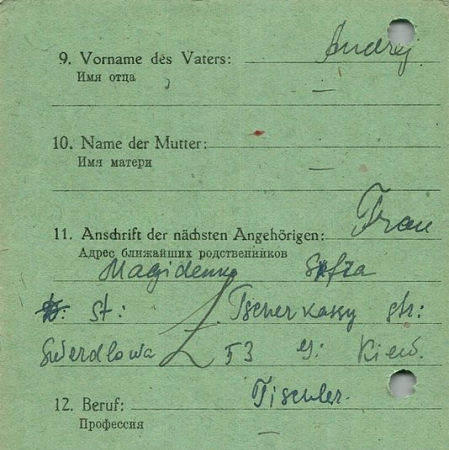 9. Vorname des Vaters: Andrej
Имя отца —
10. Name der Mutter: —
Имя матери
11. Anschrift der nächsten Angehörigen: Frau
Адрес ближайших родственников
Magidenko Sofia
st: Tscherkassy str:
Swerdlowa 53 g: Kiew.
12. Beruf: Tischler.
Профессия —